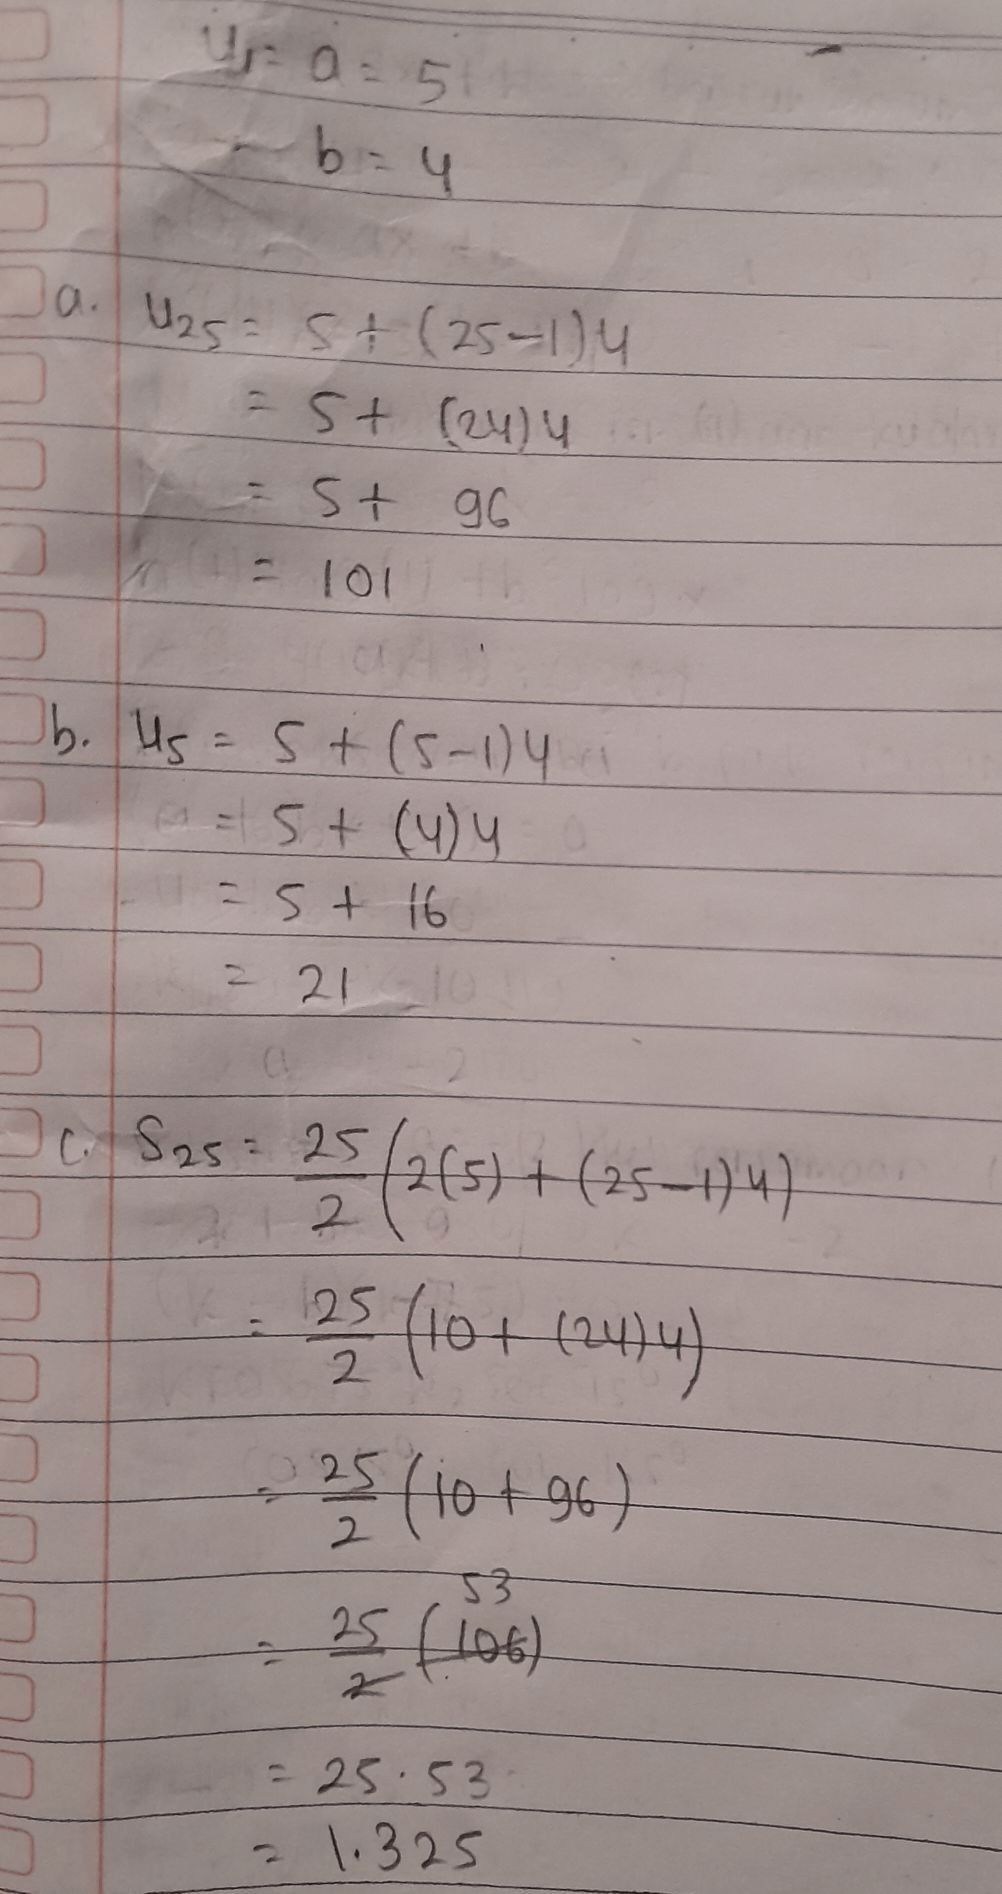 U₁ = a = 5
b = 4
a. U₂₅ = 5 + (25-1)4
= 5 + (24)4
= 5 + 96
= 101
b. U₅ = 5 + (5-1)4
= 5 + (4)4
= 5 + 16
= 21
c. S₂₅ = 25/2 (2(5) + (25-1)4)
= 25/2 (10 + (24)4)
= 25/2 (10 + 96)
53
= 25/2 (106)
= 25 . 53
= 1.325